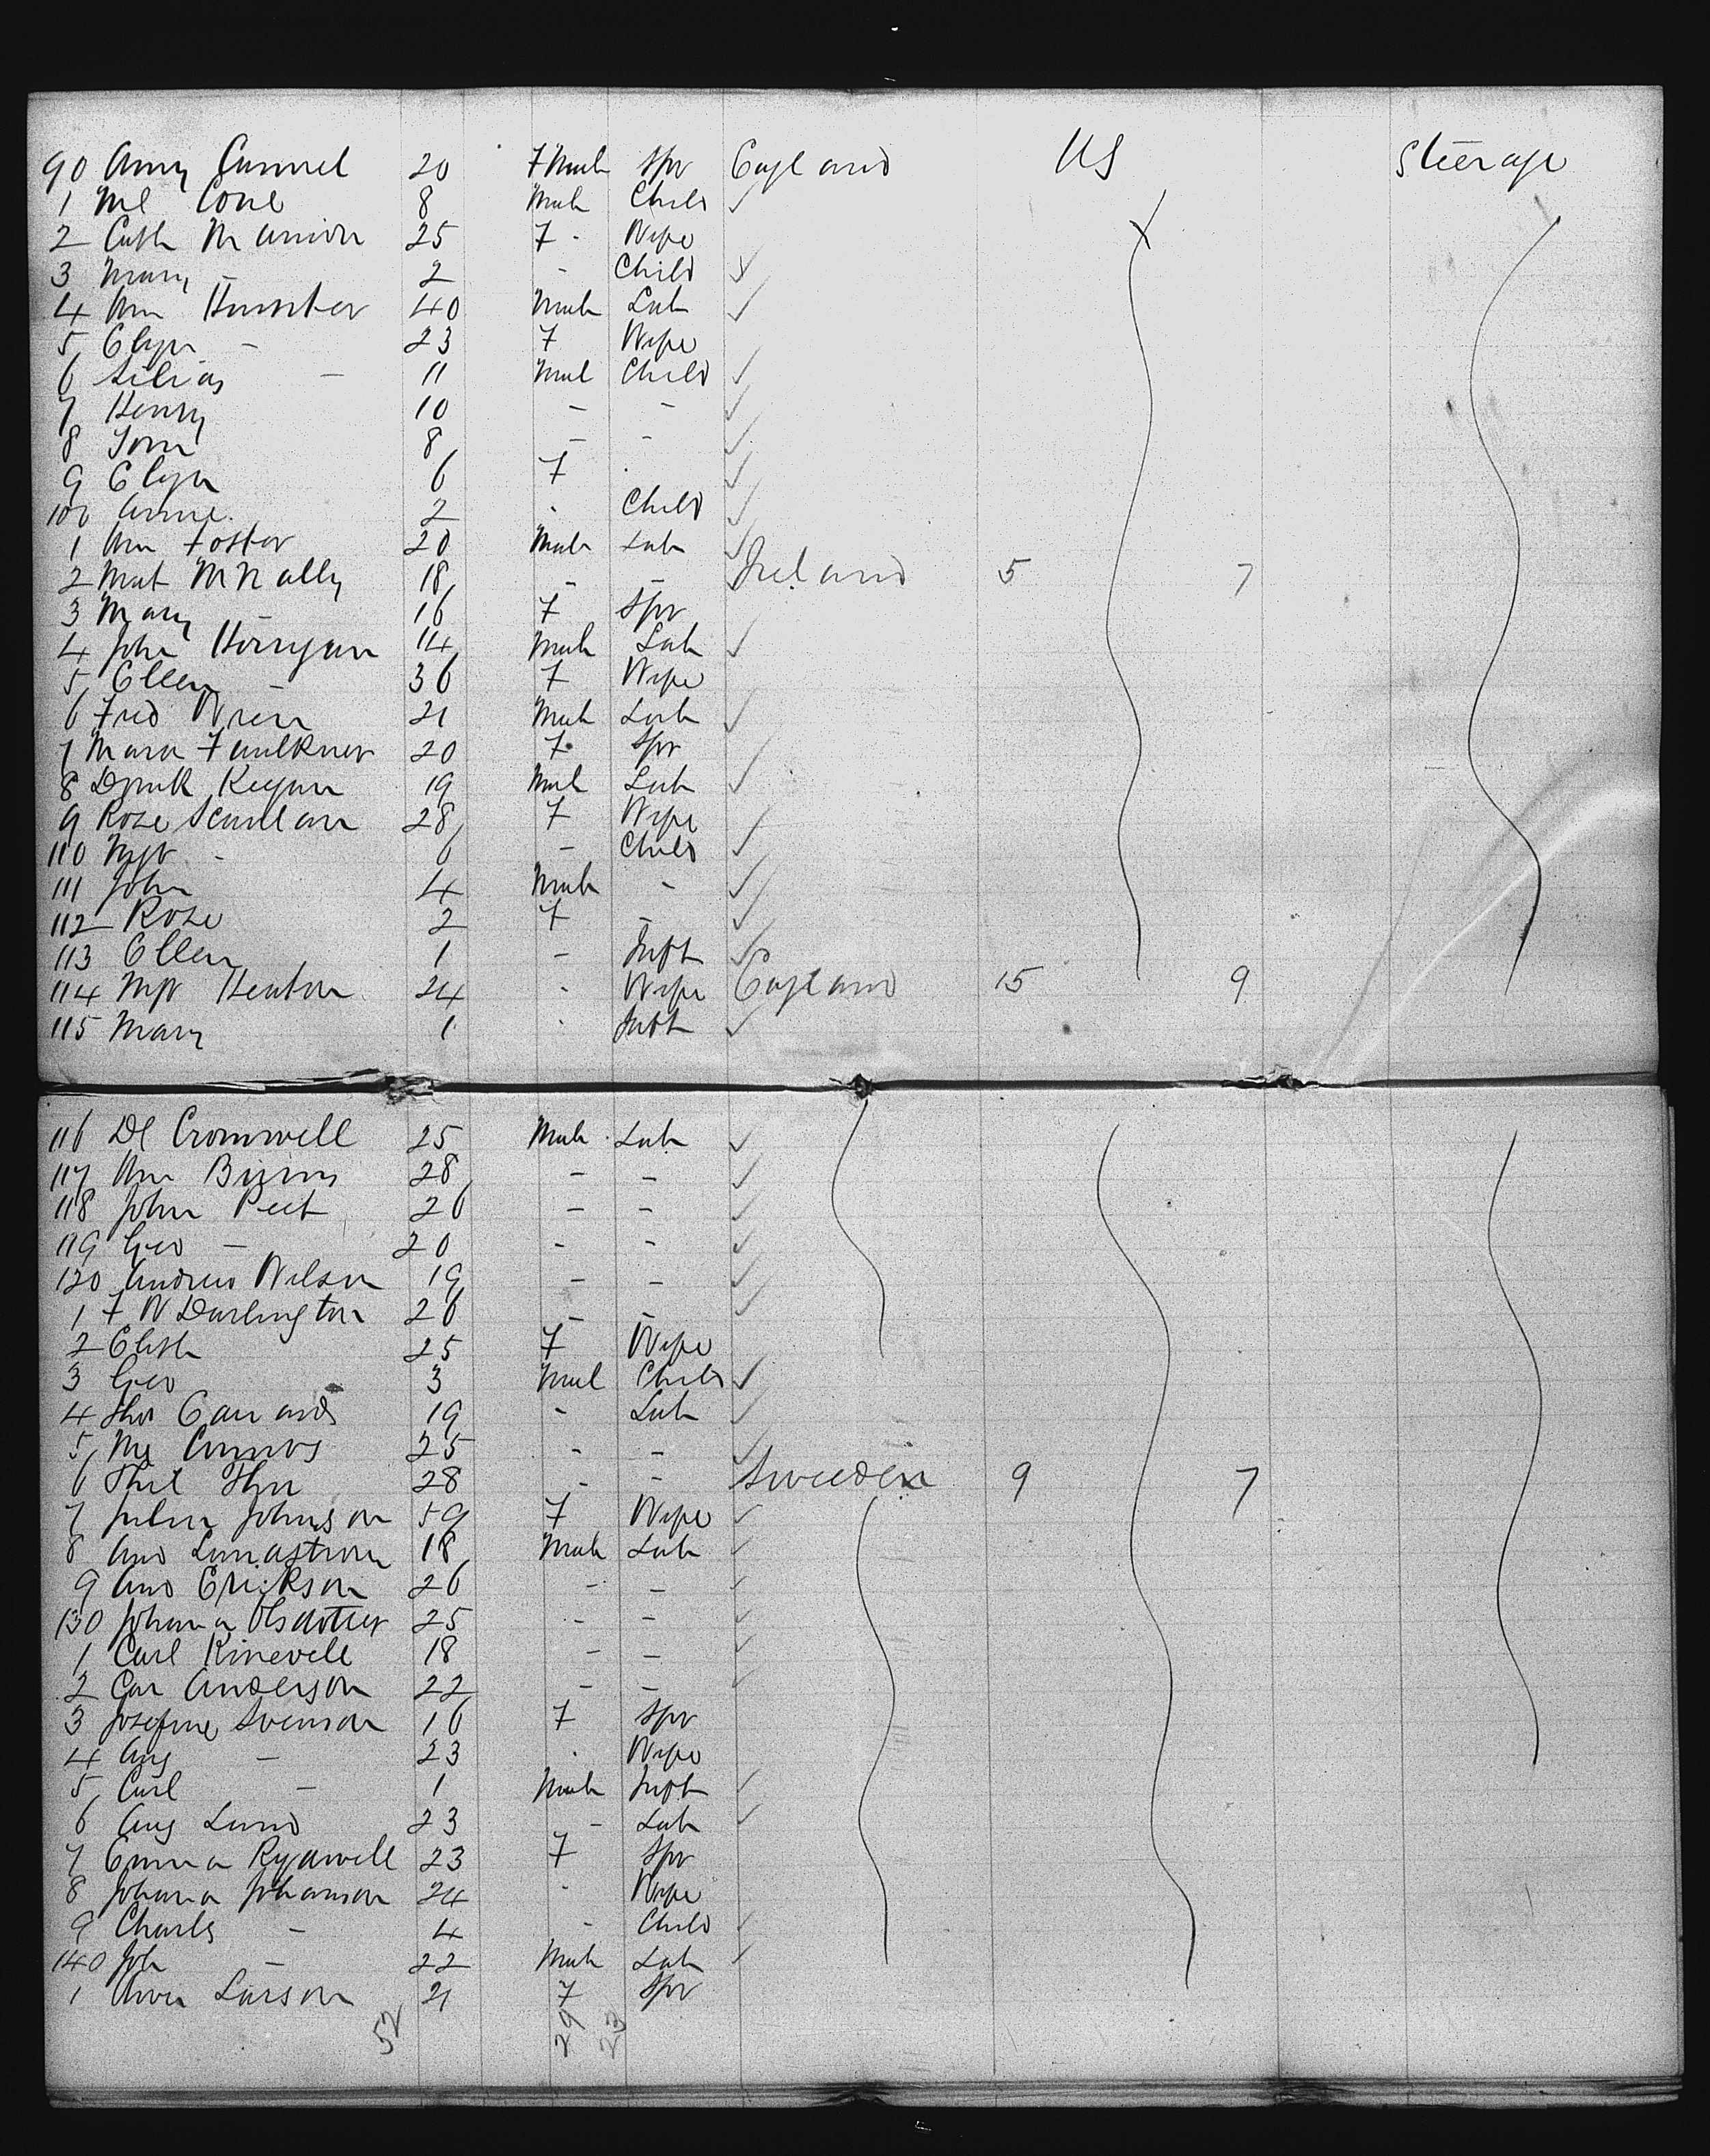 90 Amy Cunnel 20 F Male Spr England US Steerage
1 Ml Cone 8 Male Child ✓
2 Cath Mannion 25 F - Wife
3 Mary - 2 - Child ✓
4 Wm Hunter 40 Male Lab ✓
5 Eliza - 23 F Wife
6 Silias - 11 Mal Child ✓
7 Henry 10 - - ✓
8 Tom 8 - - ✓
9 Eliza 6 F ✓
100 Annie 2 Child ✓
1 Wm Foster 20 Male Lab ✓
2 Mat McNally 18 - - Ireland 5 7
3 Mary - 16 F Spr
4 John Horrigan 14 Male Lab ✓
5 Ellen - 36 F Wife
6 Fred Wren 21 Male Lab ✓
7 Maria Faulkner 20 F Spr
8 Keegan 19 Mal Lab ✓
9 Rose Scanlan 28 F Wife
110 Mgt - 6 - Child ✓
111 John 4 Male - ✓
112 Rose 2 F - ✓
113 Ellen 1 - Inft ✓
114 Mgt Henton 24 Wife England 15 9
115 Mary 1 Inft ✓
116 Dl Cromwell 25 Male Lab ✓
117 Wm Burns 28 - - ✓
118 John Peet 26 - - ✓
119 Geo - 20 - - ✓
120 Andrew Wilson 19 - - ✓
1 F W Darlington 26 - - ✓
2 Elisth 25 F Wife
3 Geo 3 Mal Child ✓
4 Thos 19 - Lab ✓
5 25 - - ✓
6 28 - - Sweden 9 7
7 Johnson 59 F Wife ✓
8 And Lundstrom 18 Male Lab ✓
9 And Erickson 26 - - ✓
130 Johana Olsdotter 25 - - ✓
1 Carl Kinevell 18 - - ✓
2 Car Anderson 22 - - ✓
3 Josefine Svenson 16 F Spr
4 Aug - 23 Wife
5 Carl - 1 Male Inft ✓
6 Aug Lund 23 - Lab ✓
7 Emma 23 F Spr
8 Johana Johanson 24 Wife
9 Charls - 4 - Child ✓
140 Joh - 22 Male Lab ✓
1 Larson 21 F Spr
52 29 23